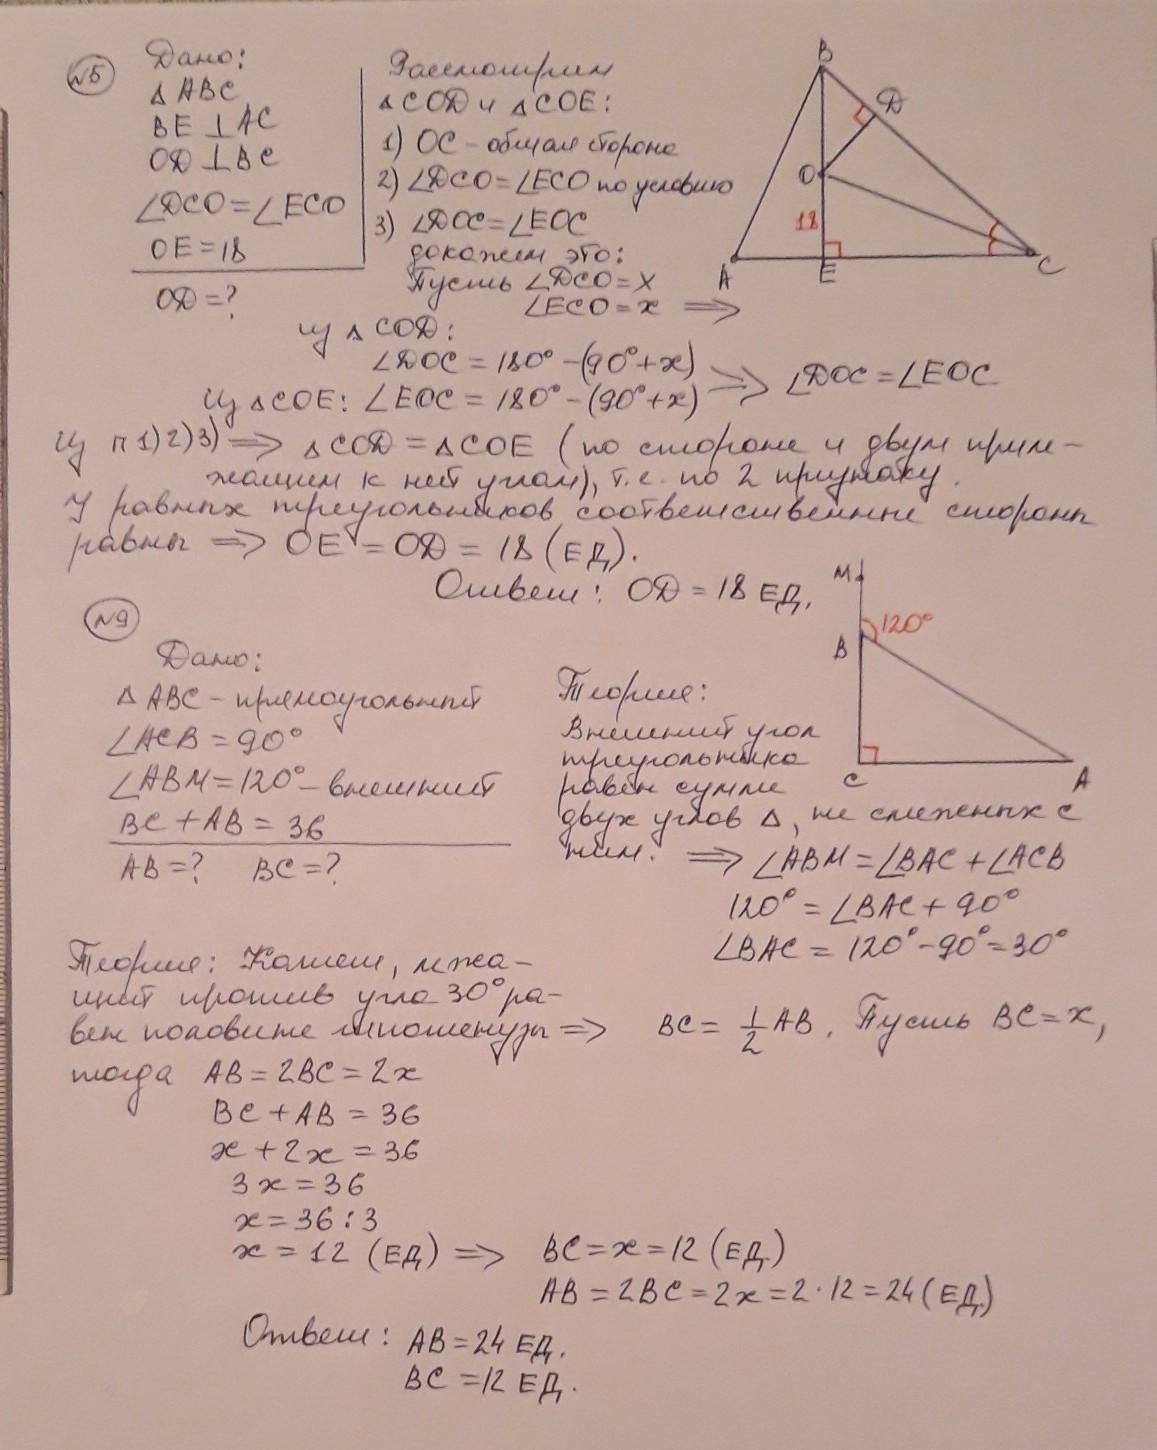 №5
Дано:
△ ABC
BE ⊥ AC
OD ⊥ BC
∠DCO = ∠ECO
OE = 18
OD = ?
Рассмотрим
△ COD и △ COE:
1) OC - общая сторона
2) ∠DCO = ∠ECO по условию
3) ∠DOC = ∠EOC
докажем это:
Пусть ∠DCO = x
∠ECO = x ⟹
B
D
O
18
A
E
C
из △ COD:
∠DOC = 180° - (90° + x)
⟹ ∠DOC = ∠EOC
Из △ COE: ∠EOC = 180° - (90° + x)
Из п 1) 2) 3) ⟹ △ COD = △ COE (по стороне и двум приле-
жащим к ней углам), т.е. по 2 признаку.
У равных треугольников соответственные стороны
равны ⟹ OE = OD = 18 (ЕД).
Ответ: OD = 18 ЕД.
№9
Дано:
△ ABC - прямоугольный
∠ACB = 90°
∠ABM = 120° - внешний
BC + AB = 36
AB = ? BC = ?
M
120°
B
C
A
Теория:
Внешний угол
треугольника
равен сумме
двух углов △, не смежных с
ним. ⟹ ∠ABM = ∠BAC + ∠ACB
120° = ∠BAC + 90°
∠BAC = 120° - 90° = 30°
Теория: Катет, лежа-
щий против угла 30° ра-
вен половине гипотенузы ⟹ BC = 1/2 AB. Пусть BC = x,
тогда AB = 2BC = 2x
BC + AB = 36
x + 2x = 36
3x = 36
x = 36 : 3
x = 12 (ЕД) ⟹ BC = x = 12 (ЕД)
AB = 2BC = 2x = 2 · 12 = 24 (ЕД)
Ответ: AB = 24 ЕД.
BC = 12 ЕД.